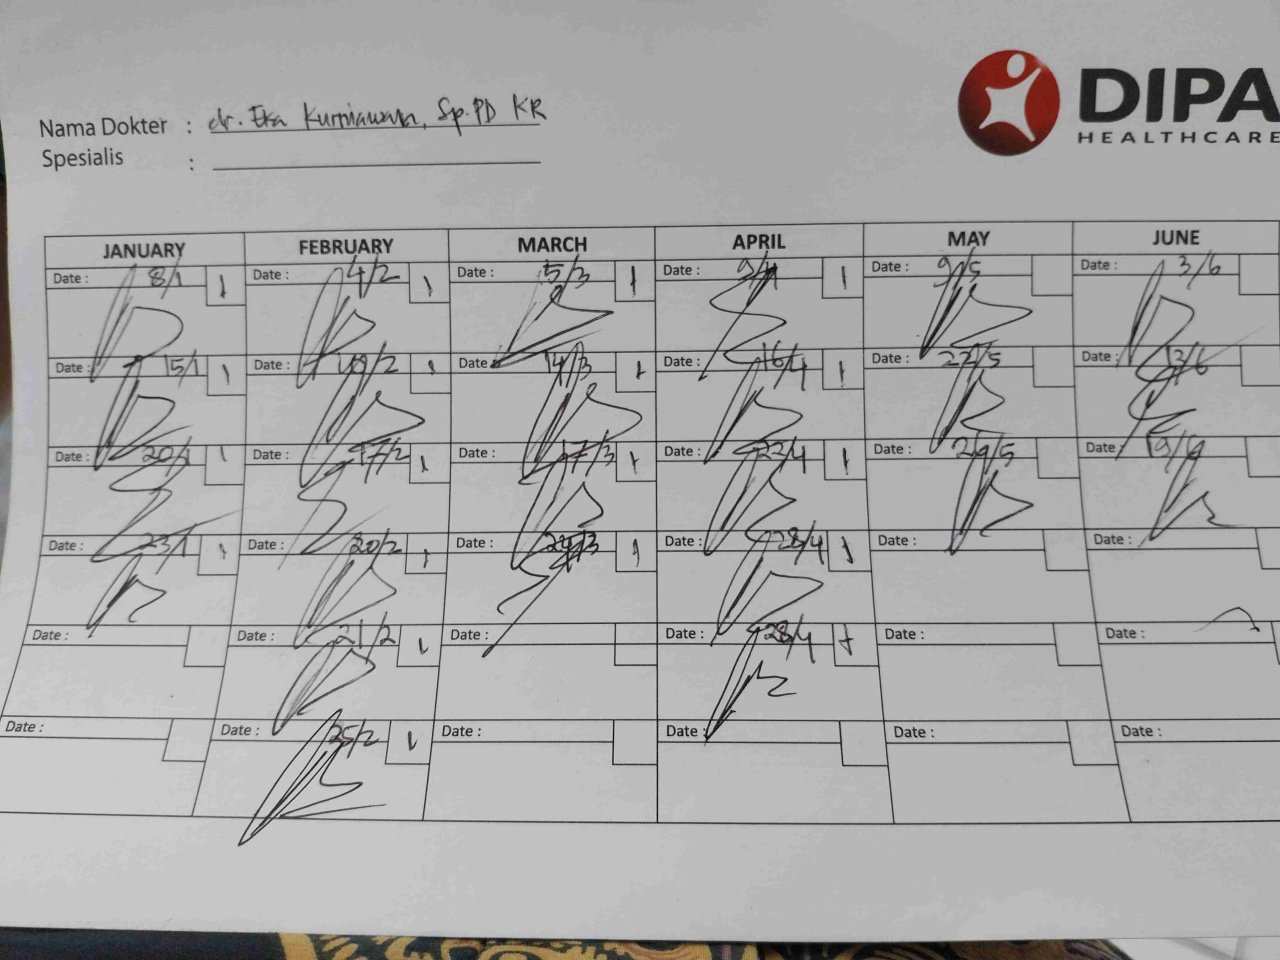 DIPA
HEALTHCARE
Nama Dokter : dr. Eka Kurniawan, Sp.PD KR
Spesialis :
JANUARY FEBRUARY MARCH APRIL MAY JUNE
Date : 8/1 1 Date : 4/2 1 Date : 5/3 1 Date : 9/4 1 Date : 9/5 Date : 3/6
Date : 15/1 1 Date : 10/2 1 Date : 14/3 1 Date : 16/4 1 Date : 22/5 Date : 13/6
Date : 20/1 1 Date : 17/2 1 Date : 17/3 1 Date : 22/4 1 Date : 29/5 Date : 19/6
Date : 23/1 1 Date : 20/2 1 Date : 24/3 1 Date : 28/4 1 Date : Date :
Date : Date : 21/2 1 Date : Date : 28/4 1 Date : Date :
Date : Date : 25/2 1 Date : Date : Date : Date :